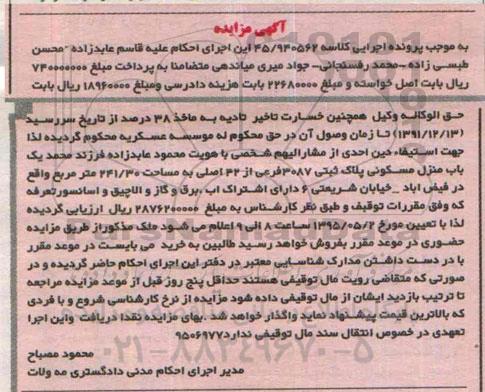 آگهی مزایده
به موجب پرونده اجرایی کلاسه ۴۵/۹۴۰۵۶۲ این اجرای احکام علیه قاسم عابدزاده -محسن
طبسی زاده -محمد رفسنجانی- جواد میری میاندهی متضامنا به پرداخت مبلغ ۷۴۰۰۰۰۰۰۰
ریال بابت اصل خواسته و مبلغ ۲۲۶۸۰۰۰۰ بابت هزینه دادرسی ومبلغ ۱۸۹۶۰۰۰۰ ریال بابت
حق الوکاله وکیل همچنین خسارت تاخیر تادیه به ماخذ ۳۸ درصد از تاریخ سررسید
(۱۳۹۱/۱۲/۱۳) تا زمان وصول آن در حق محکوم له موسسه عسکریه محکوم گردیده لذا
جهت استیفاء دین احدی از مشارالیهم شخصی با هویت محمود عابدزاده فرزند محمد یک
باب منزل مسکونی پلاک ثبتی ۳۰۸۷فرعی از ۴۲ اصلی به مساحت ۲۴۱/۳۰ متر مربع واقع
در فیض اباد _خیابان شریعتی ۶ دارای اشتراک اب ،برق و گاز و الاچیق و اسانسورتعرفه
که وفق مقررات توقیف و طبق نظر کارشناس به مبلغ ۲۸۷۶۲۰۰۰۰۰ ریال ارزیابی گردیده
لذا با تعیین مورخ ۱۳۹۵/۰۵/۱۲ ساعت ۸ الی ۹ اعلام می شود ملک مذکوراز طریق مزایده
حضوری در موعد مقرر بفروش خواهد رسید طالبین به خرید می بایست در موعد مقرر
با در دست داشتن مدارک شناسایی معتبر در دفتر این اجرای احکام حاضر گردیده و در
صورتی که متقاضی رویت مال توقیفی هستند حداقل پنج روز قبل از موعد مزایده مراجعه
تا ترتیب بازدید ایشان از مال توقیفی داده شود مزایده از نرخ کارشناسی شروع و با فردی
که بالاترین قیمت پیشنهاد نماید واگذار خواهد شد .بهای مزایده نقدا دریافت واین اجرا
تعهدی در خصوص انتقال سند مال توقیفی ندارد۹۵۰۶۹۷۷
محمود مصباح
مدیر اجرای احکام مدنی دادگستری مه ولات
۰۲۱-۸۸۳۴۹۶۷۰-۵